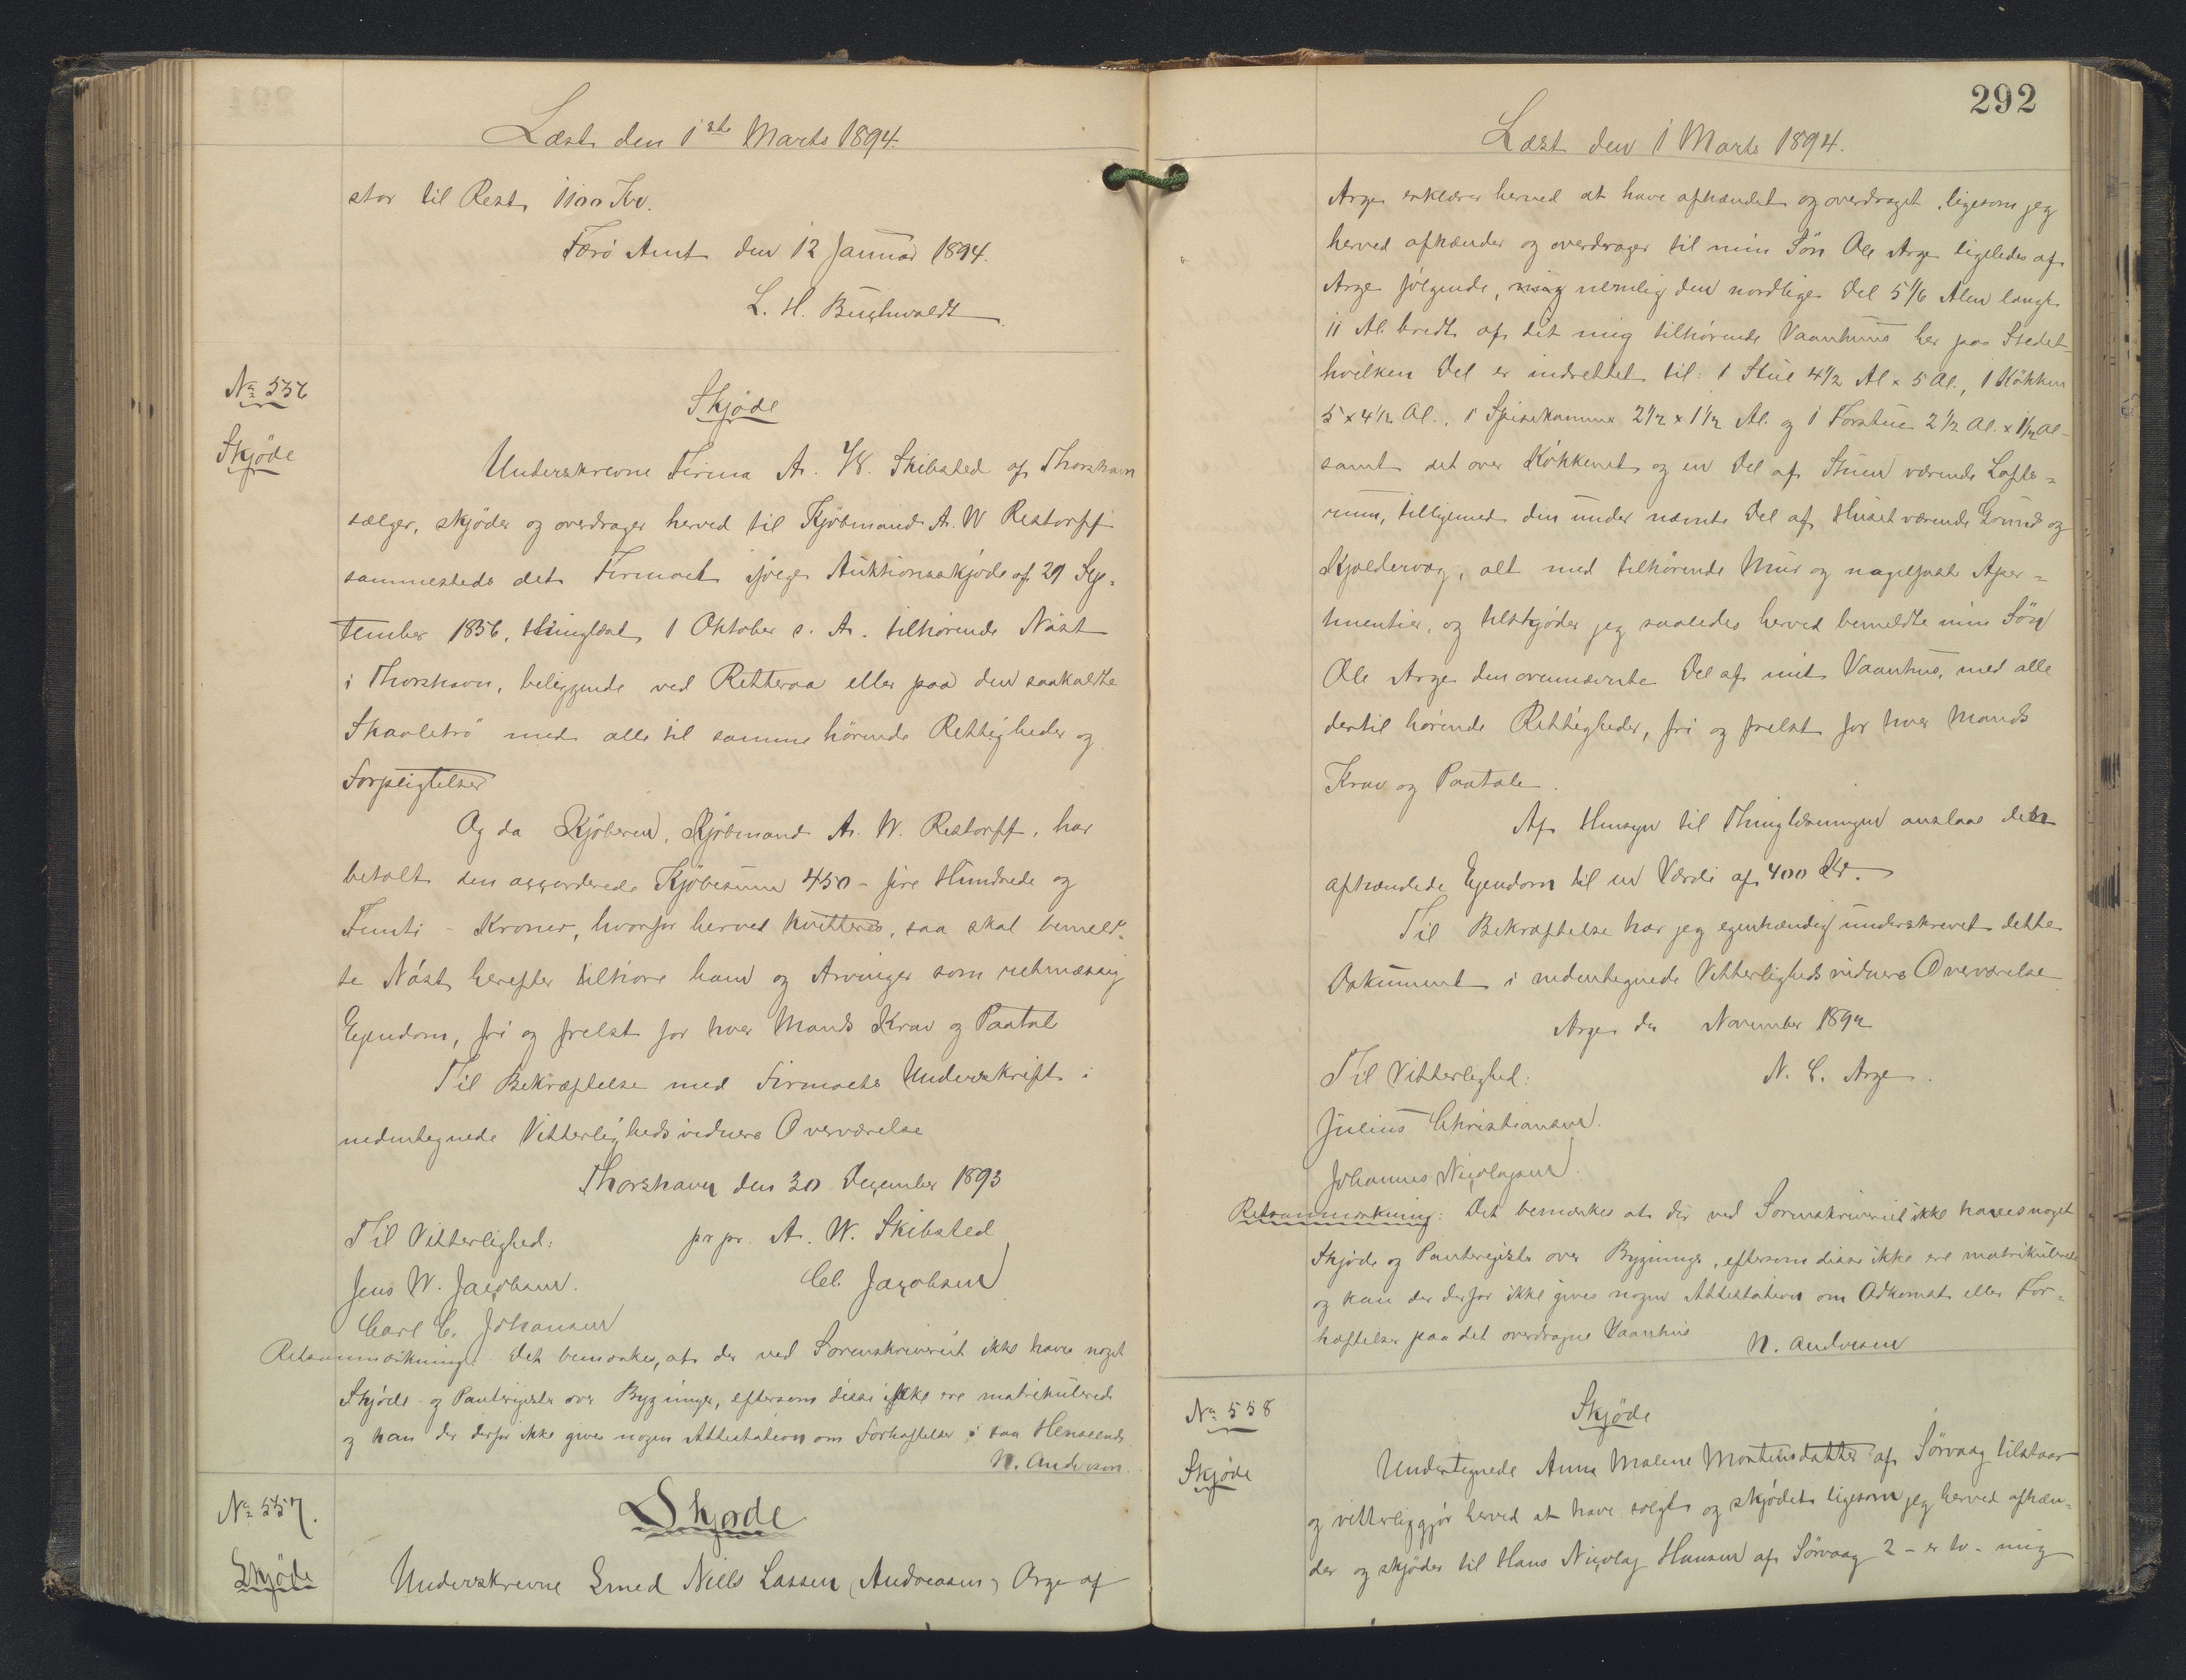 Læst den 1ste Marts 1894.
stor til Rest 1100 Kr.
Færö Amt den 12 Januar 1894.
L. H. Buchwaldt
No 556
Skjöde
Skjöde
Underskrevne Firma A. W. Skibsted af Thorshavn
sælger, skjöder og overdrager herved til Kjöbmand A. W Restorff
sammesteds det Firmaet ifölge Auktionsskjöde af 29 Sep-
tember 1856, thinglæst 1 Oktober s. A. tilhörende Nöst
i Thorshavn, beliggende ved Retteraa eller paa den saakaldte
Skaaletrö med alle til samme hörende Rettigheder og
Forpligtelser
Og da Kjöberen, Kjöbmand A. W. Restorff, har
betalt den accorderede Kjöbesum 450 - fire Hundrede og
Femti - Kroner, hvorfor herved kvitteres, saa skal bemeld-
te Nöst herefter tilhöre ham og Arvinger som retmæssig
Ejendom, fri og frelst for hver Mands Krav og Paatale
Til Bekræftelse med Firmaets Underskrift i
nedentegnede Vitterligheds vidners Overværelse
Thorshavn den 30 December 1893
Til Vitterlighed: pr pr. A. W. Skibsted
Jens W. Jacobsen. Chl. Jacobsen
Carl C. Johansen
Retsanmærkning: Det bemærkes, at der ved Sorenskriveriet ikke haves noget
Skjöde- og Panteregister over Bygninger, eftersom disse ikke ere matrikulerede
og kan der derfor ikke gives nogen Attestation om Forhæftelser i saa Henseende
N. Andersen.
No 557.
Skjöde
Skjøde
Underskrevne Smed Niels Lassen (Andreasen) Arge af
292
Læst den 1 Marts 1894.
Arge erklærer herved at have afhændet og overdraget, ligesom jeg
herved afhænder og overdrager til min Sön Ole Arge ligeledes af
Arge fölgende, nemlig den nordlige Del 5 1/6 Alen langt
11 Al. bredt af det mig tilhörende Vaanhuus her paa Stedet
hvilken Del er indrettet til: 1 Stue 4 1/2 Al x 5 Al., 1 Kökken
5 x 4 1/2 Al., 1 Spisekammer 2 1/2 x 1 1/2 Al. og 1 Forstue 2 1/2 Al. x 1 1/2 Al-
samt det over Kökkenet og en Del af Stuen værende Lofts-
rum, tilligemed den under nævnte Del af Huset værende Grund og
Kjældervæg, alt med tilhörende Mur og nagelfaste Aper-
tinentier, og tilskjöder jeg saaledes herved bemeldte min Sön
Ole Arge den ovennævnte Del af mit Vaanhus, med alle
dertil hörende Rettigheder, fri og frelst for hver Mands
Krav og Paatale.
Af Hensyn til Thinglæsningen anslaas den
afhændede Ejendom til en Værdi af 400 Kr.
Til Bekræftelse har jeg egenhændig underskrevet dette
Dokument i nedentegnede Vitterligheds vidners Overværelse
Arge den November 1892
Til Vitterlighed: N. L. Arge.
Julius Christiansen.
Johannes Nicolajsen.
Retsanmærkning: Det bemærkes at der ved Sorenskriveriet ikke haves noget
Skjöde og Panteregister over Bygninger, eftersom disse ikke ere matrikulerede
og kan der derfor ikke gives nogen Attestation om Adkomst eller For-
hæftelser paa det overdragne Vaanhus
N. Andersen
No 558
Skjöde
Skjöde
Undertegnede Anna Malene Mortensdatter af Sörvaag tilstaar
og vitterliggjör herved at have solgt og skjödet ligesom jeg herved afhæn-
der og skjöder til Hans Nicolaj Hansen af Sörvaag 2 - er to - mig